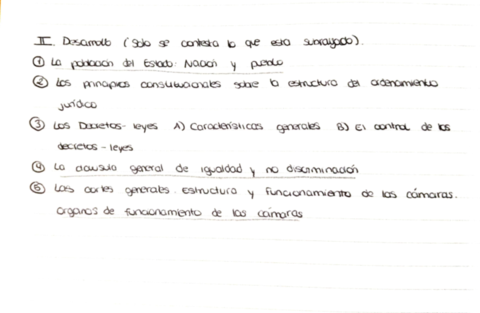 II. Desarrollo (Solo se contesta lo que esta subrayado).
① La población del Estado: Nación y pueblo
② Los principios constitucionales sobre la estructura del ordenamiento
jurídico
③ Los Decretos-leyes A) Características generales B) El control de los
decretos-leyes
④ La clausula general de igualdad y no discriminación
⑤ Las cortes generales. estructura y funcionamiento de las cámaras.
organos de funcionamiento de las cámaras